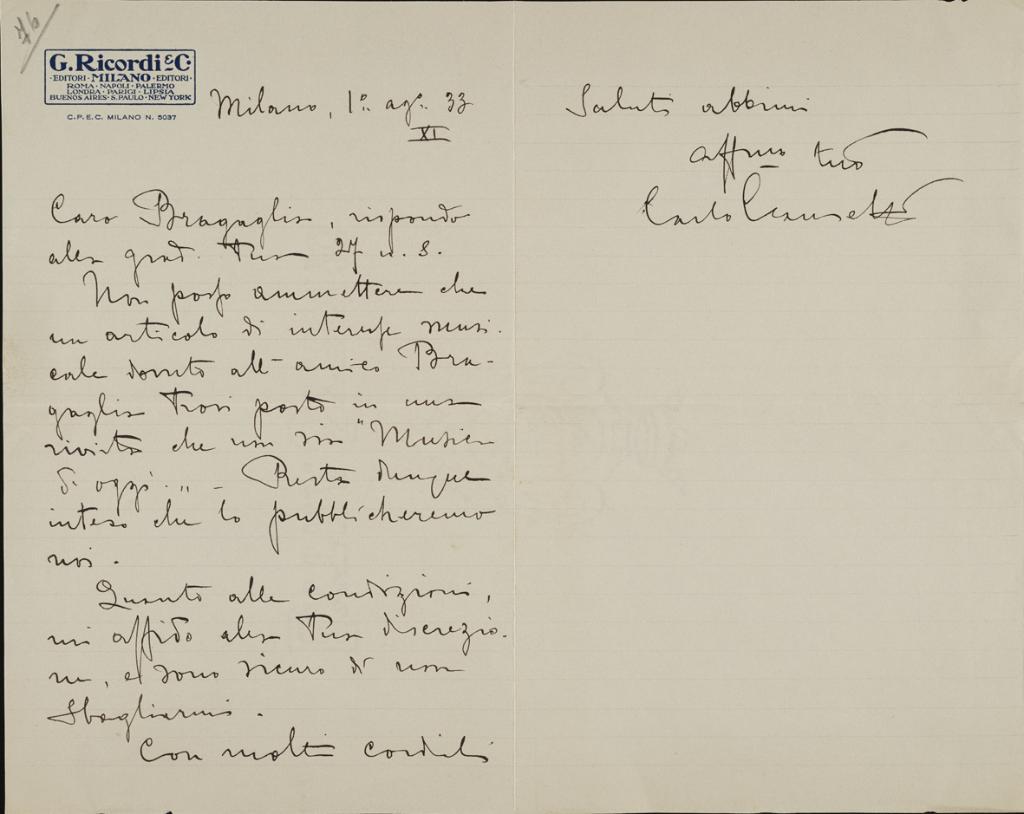 76
G. Ricordi & C.
·EDITORI·MILANO·EDITORI·
ROMA·NAPOLI·PALERMO
LONDRA·PARIGI·LIPSIA
BUENOS AIRES·S. PAULO·NEW YORK
C.P.E.C. MILANO N. 5037
Milano, 1º ago. 33
XI
Caro Bragaglia, rispondo
alla grad. Tua 27 u. s.
Non posso ammettere che
un articolo di interesse musi-
cale dovuto all'amico Bra-
gaglia trovi posto in una
rivista che non sia "Musica
di oggi". - Resta dunque
inteso che lo pubblicheremo
noi.
Quanto alle condizioni,
mi affido alla Tua discrezio-
ne, e sono sicuro di non
sbagliarmi.
Con molti cordiali
Saluti abbimi
affmo tuo
Carlo Clausetti